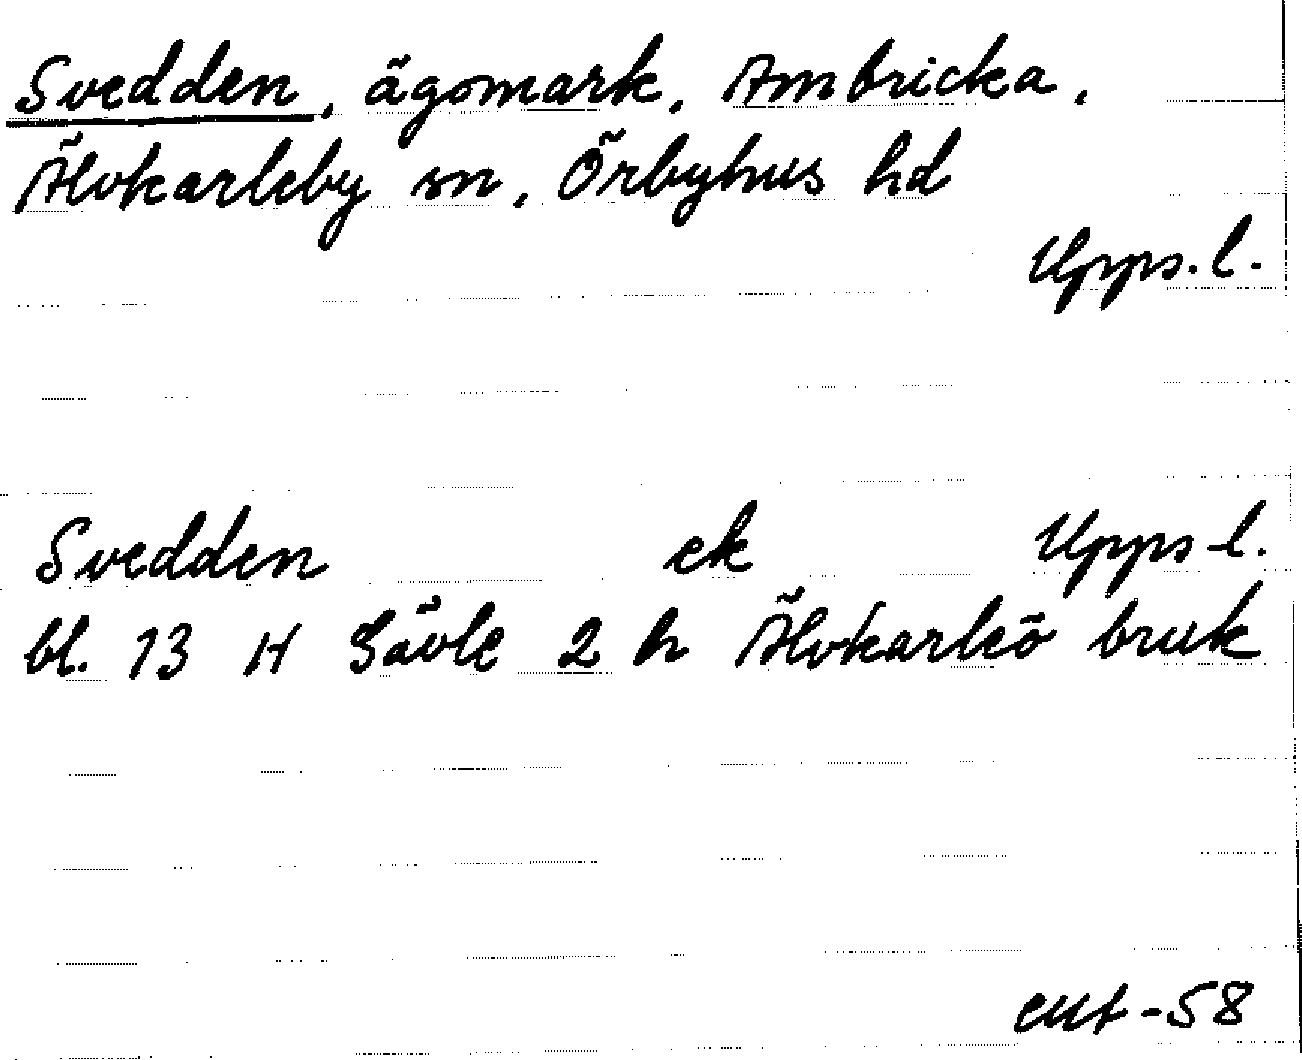 Svedden, ägomark, Ambricka,
Älvkarleby sn, Örbyhus hd
Upps. l.
Svedden ek Upps l.
bl. 13 H Gävle 2 h Älvkarleö bruk
-58